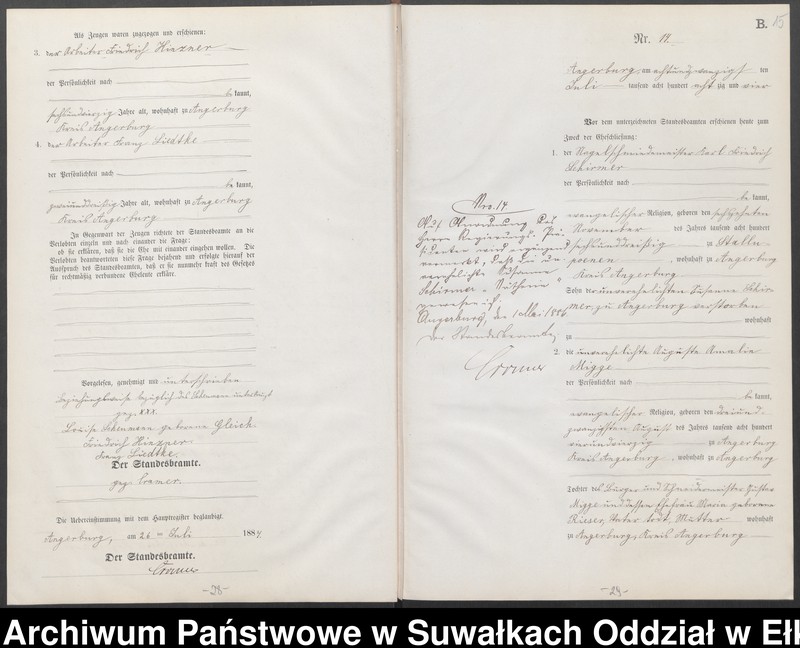 Als Zeugen waren zugezogen und erschienen:
3. der Arbeiter Friedrich Hinzner
der Persönlichkeit nach
be kannt,
sechsundvierzig Jahre alt, wohnhaft zu Angerburg
Kreis Angerburg
4. der Arbeiter Franz Liedtke
der Persönlichkeit nach
be kannt,
zweiunddreißig Jahre alt, wohnhaft zu Angerburg
Kreis Angerburg
In Gegenwart der Zeugen richtete der Standesbeamte an die
Verlobten einzeln und nach einander die Frage:
ob sie erklären, daß sie die Ehe mit einander eingehen wollen. Die
Verlobten beantworteten diese Frage bejahend und erfolgte hierauf der
Ausspruch des Standesbeamten, daß er sie nunmehr kraft des Gesetzes
für rechtmäßig verbundene Eheleute erkläre.
Vorgelesen, genehmigt und unterschrieben
beziehungsweise bezüglich des unterkreuzt
gez. XXX.
Louise geborene Gleich.
Friedrich Hinzner.
Franz Liedtke.
Der Standesbeamte.
gez. Cremer.
Die Uebereinstimmung mit dem Hauptregister beglaubigt
Angerburg, am 26 ten Juli 1884
Der Standesbeamte.
Cremer
-28-
B. 15
Nr. 17.
Angerburg, am achtundzwanzigst ten
Juli tausend acht hundert acht zig und vier
Vor dem unterzeichneten Standesbeamten erschienen heute zum
Zweck der Eheschließung:
1. der Nagelschmiedemeister Karl Friedrich
Schirmer
der Persönlichkeit nach
be kannt,
evangelischer Religion, geboren den sechszehnten
November des Jahres tausend acht hundert
sechsunddreißig zu Stallu-
poenen, wohnhaft zu Angerburg
Kreis Angerburg
Sohn der unverehelichten Susanne Schir-
mer, zu Angerburg verstorben
wohnhaft
zu
2. die unverehelichte Auguste Amalie
Migge
der Persönlichkeit nach
be kannt,
evangelischer Religion, geboren den dreiund-
zwanzigsten August des Jahres tausend acht hundert
vierundvierzig zu Angerburg
Kreis Angerburg, wohnhaft zu Angerburg
Tochter des Bürger und Schneidermeister Gustav
Migge und dessen Ehefrau Maria geborene
Rieser, Vater todt, Mutter wohnhaft
zu Angerburg, Kreis Angerburg
Nro. 17
Auf Anordnung des
Herrn Regierungs-Prä-
sidenten wird ergänzend
vermerkt, daß die un-
verehelichte Susanne
Schirmer
gewesen ist.
Angerburg, den 1 Mai 1886
Der Standesbeamte
Cremer
-29-
Archiwum Państwowe w Suwałkach Oddział w Ełk